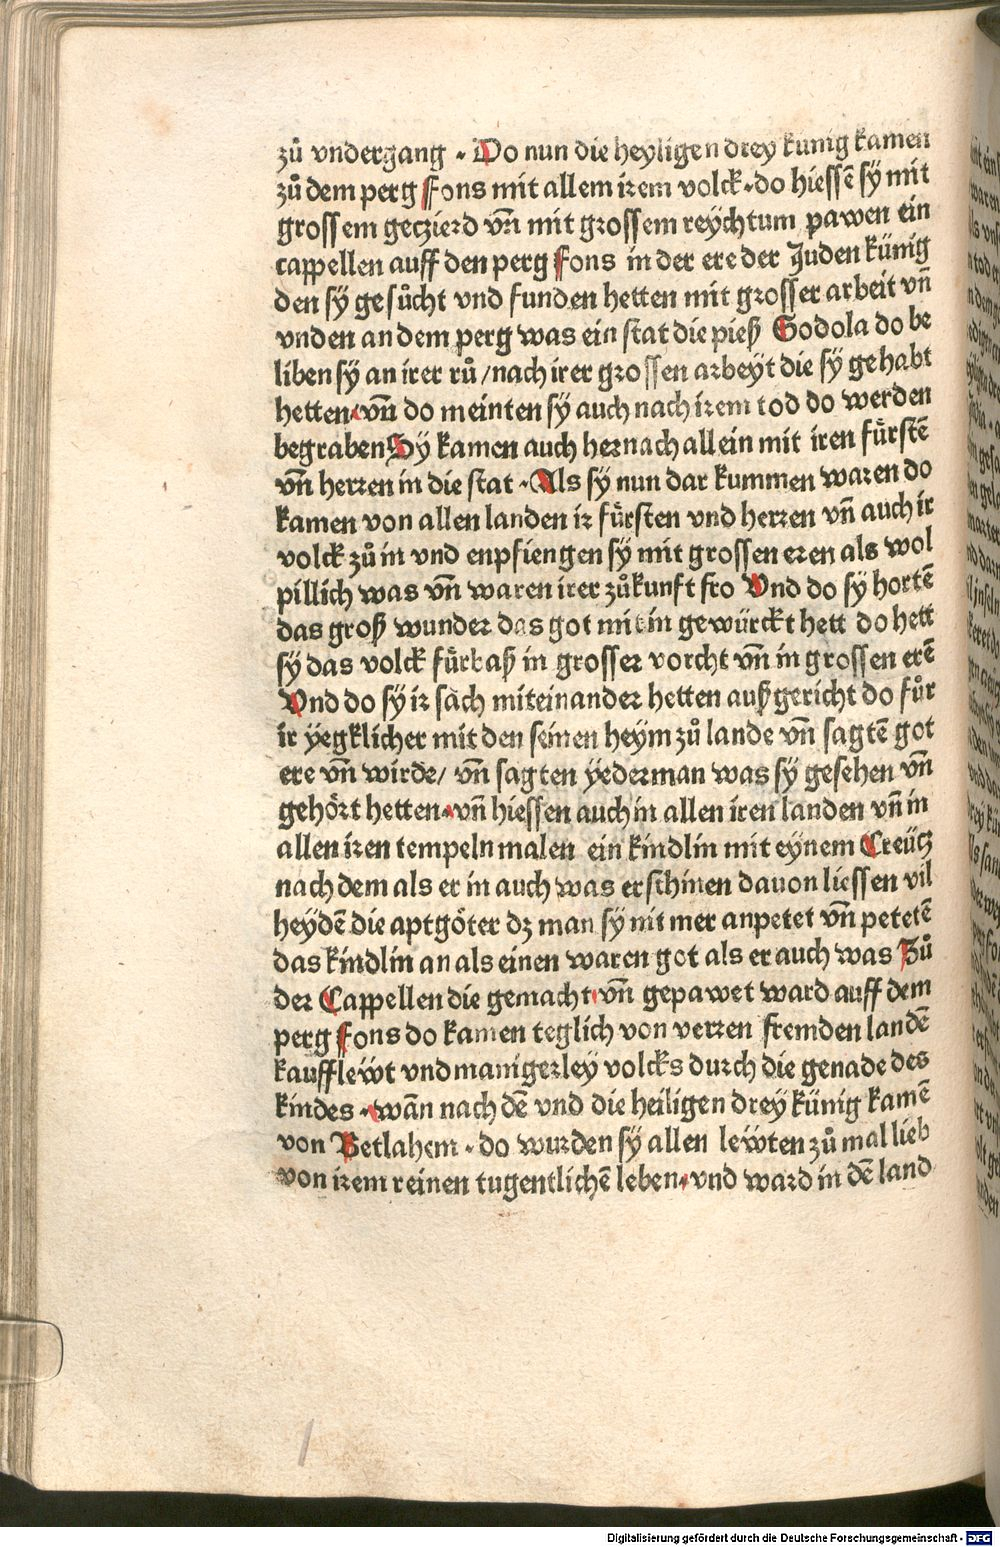 zů vndergang . Do nun die heyligen drey kunig kamen
zů dem perg Fons mit allem irem volck . do hiessē sÿ mit
grossem geczierd vn̄ mit grossem reÿchtum pawen ein
cappellen auff den perg Fons in der ere der Juden künig
den sÿ gesůcht vnd funden hetten mit grosser arbeit vn̄
vnden an dem perg was ein stat die pieß Godola do be
liben sÿ an irer rů / nach irer grossen arbeyt die sÿ gehabt
hetten . vn̄ do meinten sÿ auch nach irem tod do werden
begraben Sÿ kamen auch hernach allein mit iren fürstē
vn̄ herren in die stat . Als sÿ nun dar kummen waren do
kamen von allen landen ir fürsten vnd herren vn̄ auch ir
volck zů in vnd enpfiengen sÿ mit grossen eren als wol
pillich was vn̄ waren irer zůkunft fro Vnd do sÿ hortē
das groß wunder das got mit in gewürckt hett do hett
sÿ das volck fürbaß in grosser vorcht vn̄ in grossen erē
Vnd do sÿ ir sach miteinander hetten auß gericht do fůr
ir yegklicher mit den seinen heym zů lande vn̄ sagtē got
ere vn̄ wirde / vn̄ sagten ÿederman was sÿ gesehen vn̄
gehört hetten . vn̄ hiessen auch in allen iren landen vn̄ in
allen iren tempeln malen ein kindlin mit eÿnem Creücz
nach dem als er in auch was erschinen dauon liessen vil
heÿdē die aptgöter dz man sÿ nit mer anpetet vn̄ petetē
das kindlin an als einen waren got als er auch was Zů
der Cappellen die gemacht . vn̄ gepawet ward auff dem
perg Fons do kamen teglich von verren fremden landē
kaufflewt vnd manigerley volcks durch die genade des
kindes . wān nach dē vnd die heiligen drey künig kamē
von Betlahem . do wurden sÿ allen lewten zů mal lieb
von irem reinen tugentlichē leben . vnd ward in dē land
Digitalisierung gefördert durch die Deutsche Forschungsgemeinschaft - DFG